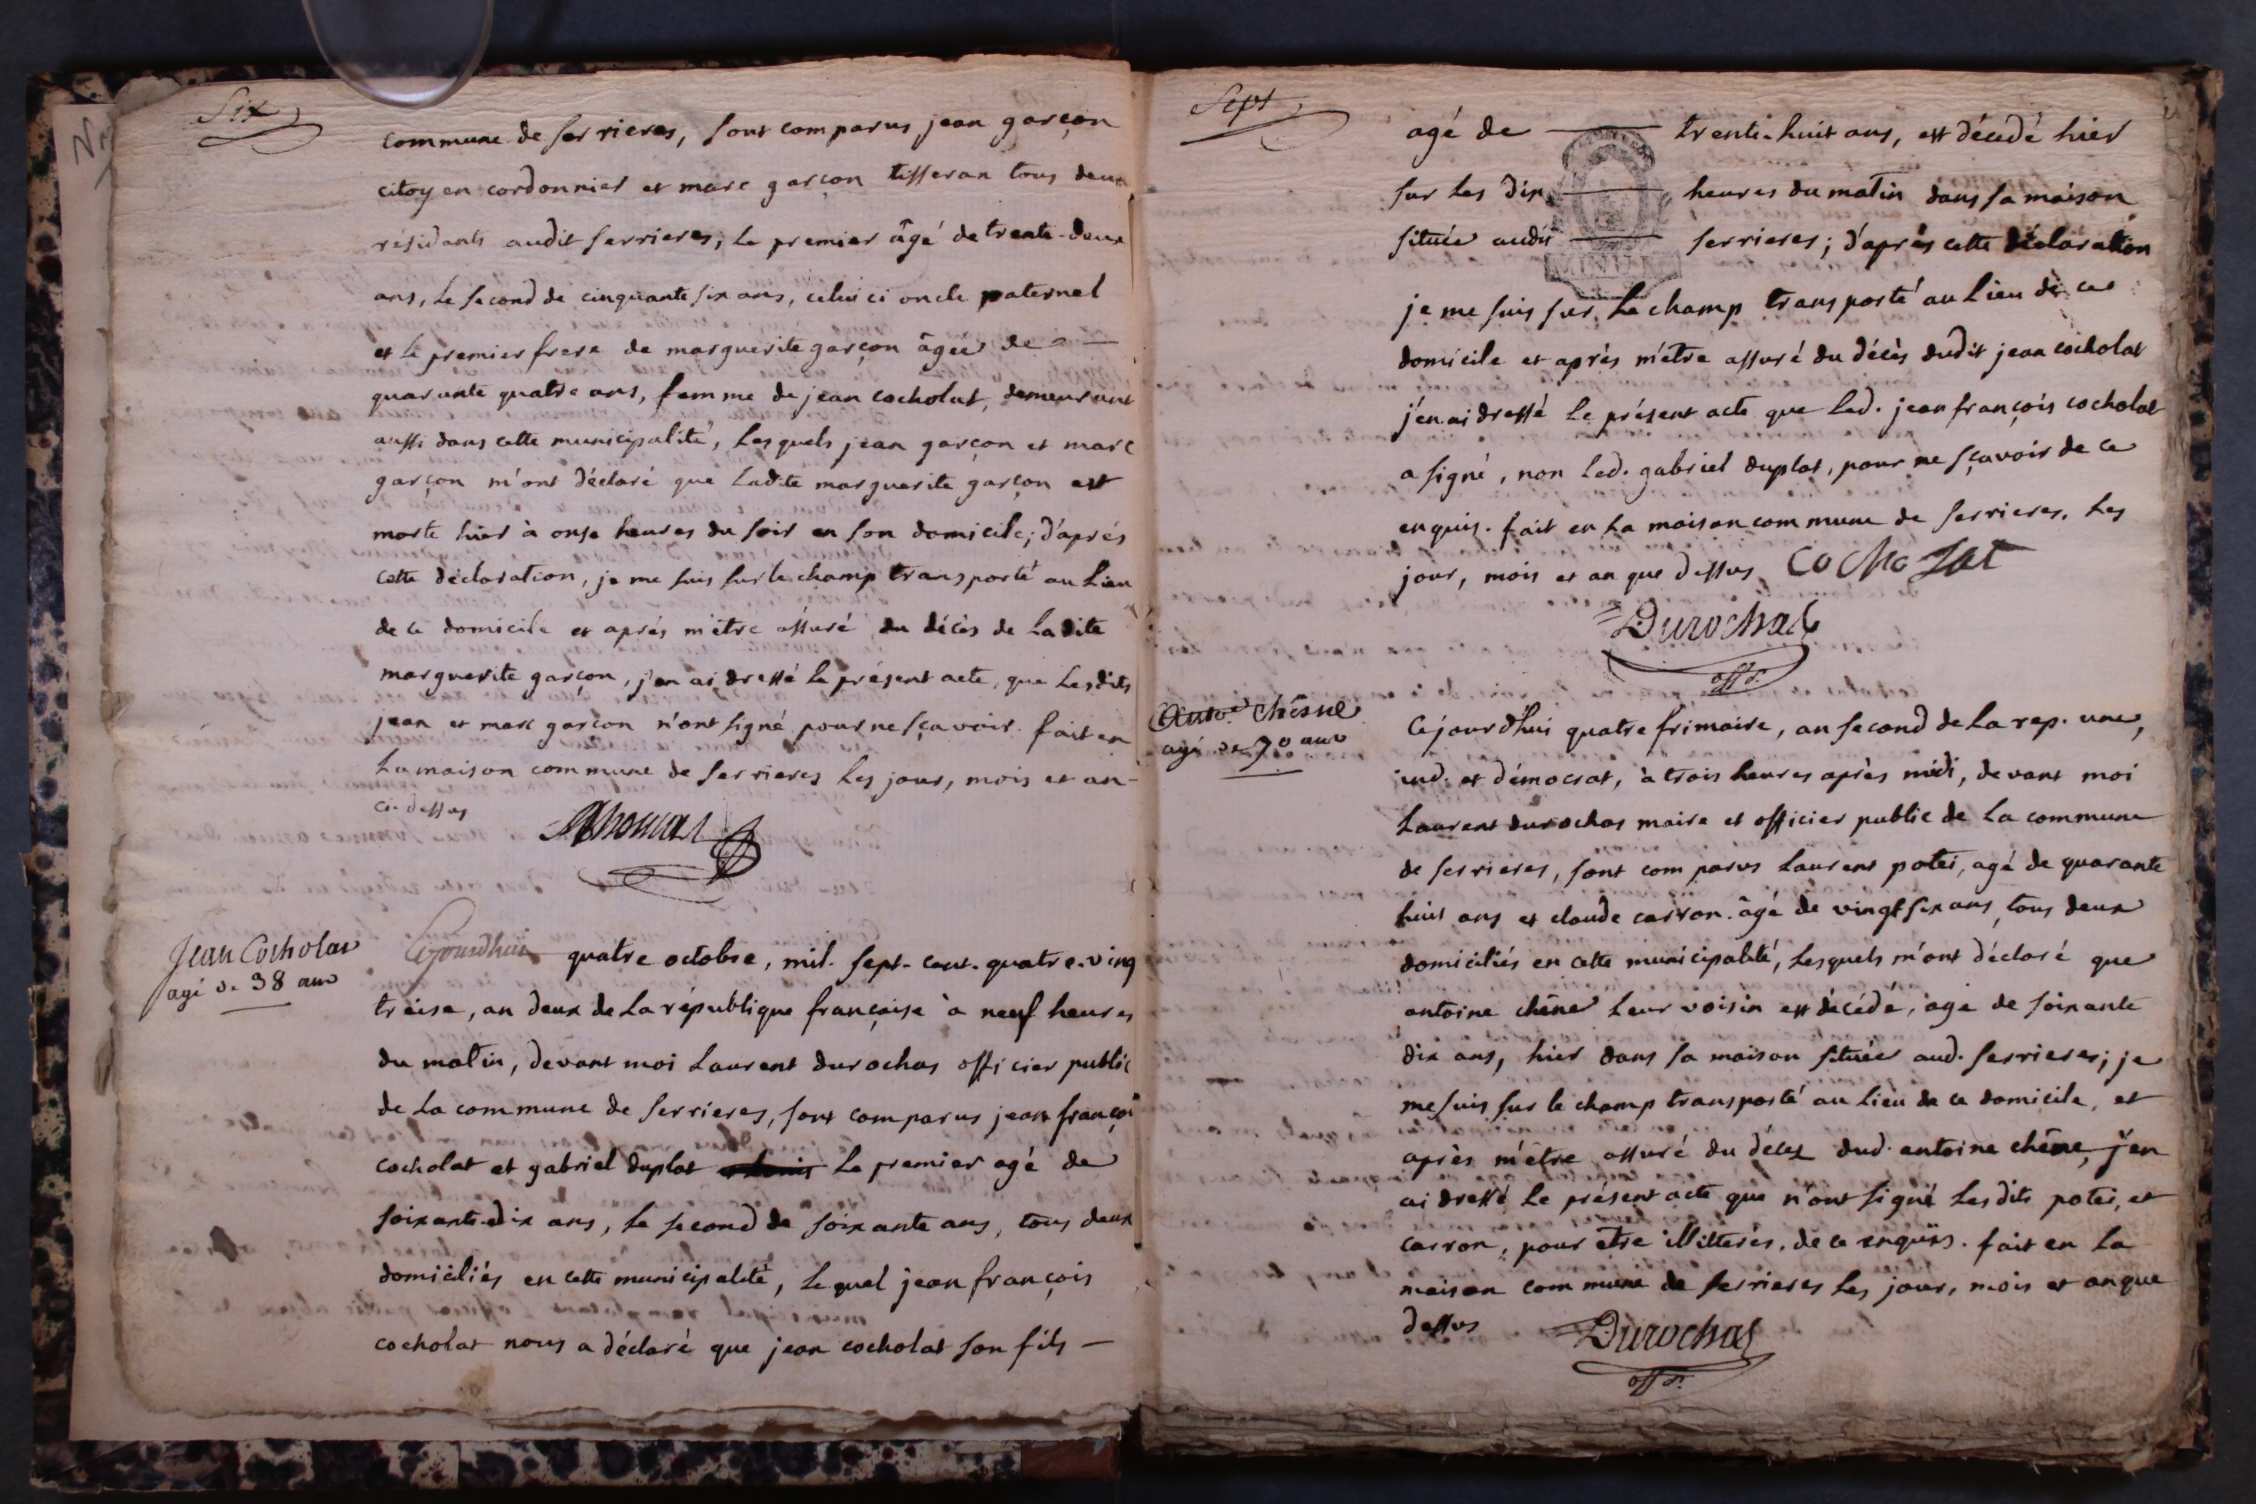 Six
commune de serrieres, sont comparus jean garçon
citoyen cordonnier et marc garçon tisseran tous deux
résidants audit serrieres; le premier âgé de trente-deux
ans, le second de cinquante six ans, celui ci oncle paternel
et le premier frere de marguerite garçon âgée de —
quarante quatre ans, femme de jean cocholat, demeurant
aussi dans cette municipalité, lesquels jean garçon et marc
garçon m'ont déclaré que ladite marguerite garçon est
morte hier à onse heures du soir en son domicile; d'aprés
cette déclaration, je me suis sur le champ transporté au lieu
de ce domicile et aprés m'être assuré du décès de la dite
marguerite garçon, j'en ai dressé le présent acte, que lesdits
jean et marc garçon n'ont signé pour ne sçavoir. fait en
la maison commune de serrieres les jour, mois et an-
ci-dessus
Jean Cocholat
agé de 38 ans
Cejourdhui quatre octobre, mil. sept-cent-quatre-ving
treise, an deux de la république française à neuf heures
du matin, devant moi Laurent durochas officier public
de la commune de serrieres, sont comparus jean françois
cocholat et gabriel duplat le premier agé de
soixante-dix ans, le second de soixante ans, tous deux
domiciliés en cette municipalité, lequel jean françois
cocholat nous a déclaré que jean cocholat son fils —
Sept
agé de — trente-huit ans, est décédé hier
sur les dix — heures du matin dans sa maison
située audit — serrieres; d'aprés cette déclaration
je me suis sur le champ transporté au lieu de ce
domicile et après m'être assuré du décès dudit jean cocholat
j'en ai dressé le présent acte que led. jean françois cocholat
a signé, non led. gabriel duplat, pour ne sçavoir de ce
enquis. fait en la maison commune de serrieres, les
jour, mois et an que dessus Cocholat
Durochas
off p.
Anto.e Chêsne
agé de 70 ans
Cejourd'hui quatre frimaire, an second de la rep. une,
ind. et démocrat, à trois heures après midi, devant moi
Laurent durochas maire et officier public de la commune
de serrieres, sont comparus Laurent potei, agé de quarante
huit ans et claude carron. âgé de vingt six ans, tous deux
domiciliés en cette municipalité, lesquels m'ont déclaré que
antoine chêne leur voisin est décédé, agé de soixante
dix ans, hier dans sa maison située aud. serrieres; je
me suis sur le champ transporté au lieu de ce domicile, et
après m'être assuré du décez dud. antoine chêne, j'en
ai dressé le présent acte que n'ont signé lesdits potei, et
carron, pour être illitterés, de ce enquis. fait en la
maison commune de serrieres les jour, mois et an que
dessus Durochas
off p.